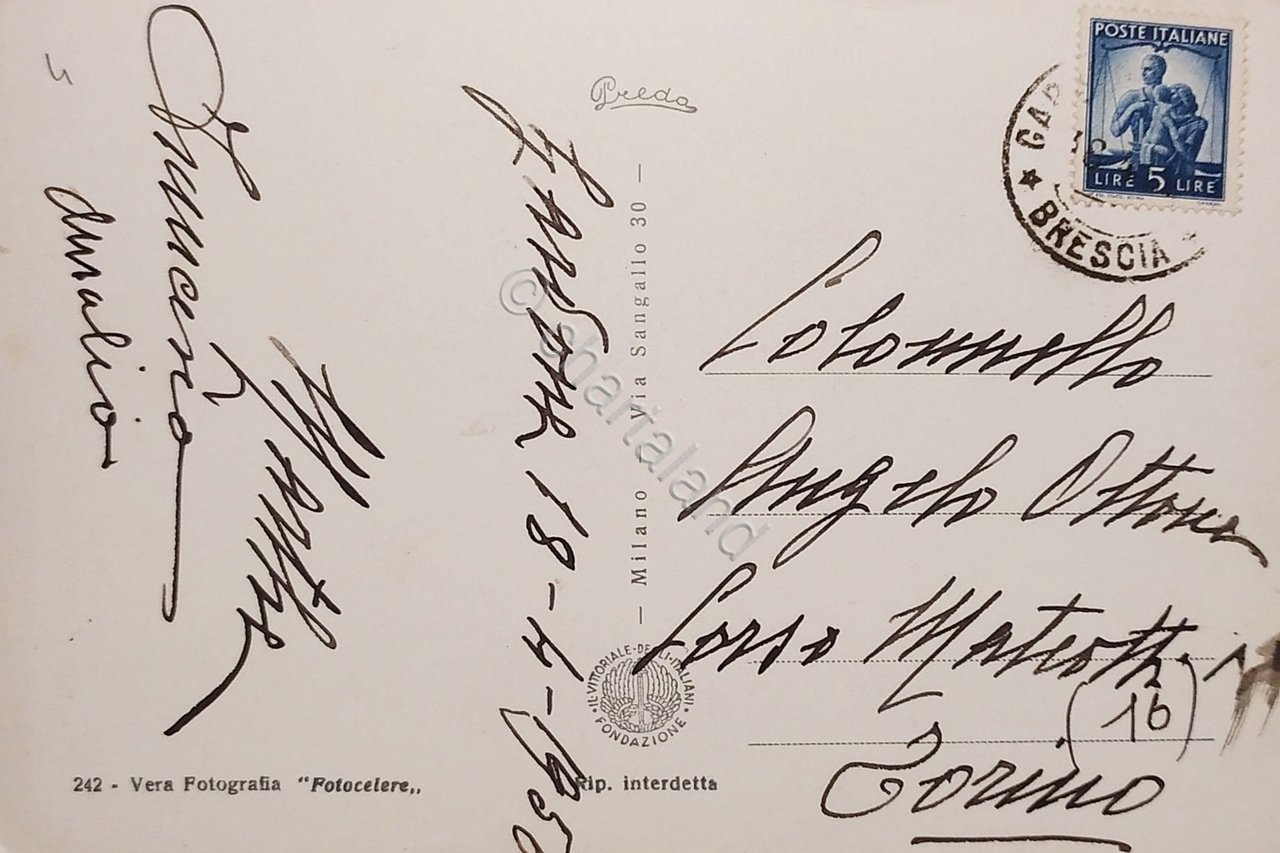 Preda
POSTE ITALIANE
LIRE 5 LIRE
BRESCIA
Vincenzo
Amalio
Gardone 18-4-195
— Milano - Via Sangallo 30 —
© chartaland
Colonnello
Angelo Ottone
Corso Matteotti
(16)
Torino
IL VITTORIALE DEGLI ITALIANI
FONDAZIONE
242 - Vera Fotografia "Fotocelere„
Rip. interdetta